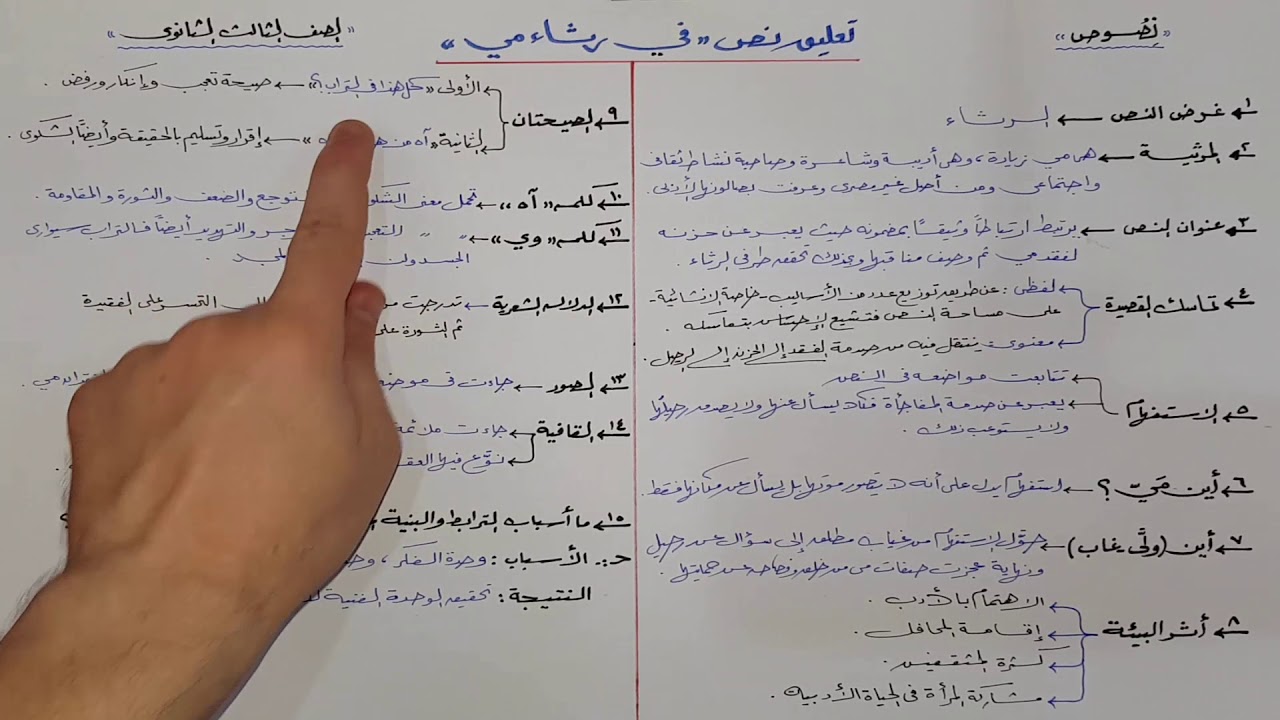 « نصوص »
تعليق نص « في رثاء مي »
« الصف الثالث الثانوى »
١ غرض النص ← الرثاء
٢ المرثية ← هى مي زيادة ، وهى أديبة وشاعرة وصاحبة نشاط ثقافى
واجتماعى ومن أصل غير مصرى وعرفت بصالونها الأدبى .
٣ عنوان النص ← يرتبط ارتباطاً وثيقاً بمضمونه حيث يعبر عن حزنه
لفقد مي ثم وصف مناقبها وبذلك تحققه طرفى الرثاء .
٤ تماسك القصيدة ← لفظى : عن طريق توزيع عدد من الأساليب - خاصة الإنشائية -
على مساحة النص فتشيع الإحساس بتماسكه .
← معنوى : ينتقل فيه من صدمة الفقد إلى الحزن إلى الرحيل .
٥ الاستفهام ← تتابعت مواضعه فى النص
← يعبر عن صدمة المفاجأة فكاد يسأل عنها ولا يصدق رحيلها
ولا يستوعب ذلك .
٦ أين مَيّ ؟ ← استفهام يدل على أنه لا يتصور موتها بل يسأل عن مكانها فقط .
٧ أين (ولَّى غاب) ← حوّل الاستفهام من غياب مطلق إلى سؤال عن رحيل
ونهاية عجزت صفات مي من عن حمايتها .
٨ أثر البيئة ← الاهتمام بالأدب .
← إقامة المحافل .
← كثرة المثقفين .
← مشاركة المرأة فى الحياة الأدبية .
٩ الصيحتان ← الأولى « كل هذا فى التراب ؟» ← صيحة تعجب وإنكار ورفض .
← الثانية « آه من » ← إقرار وتسليم بالحقيقة وأيضاً الشكوى .
١٠ كلمة « آه » ← تحمل معنى والتوجع والضعف والثورة والمقاومة .
١١ كلمة « وي » ← " " للتعجب والتهديد أيضاً فالتراب سيوارى
الجسد دون المجد .
١٢ الدلالة الشعرية ← تدرجت التحسر على الفقيدة
ثم الثورة على
١٣ الصور ← جاءت فى مي .
١٤ القافية ← جاءت ملائمة
← نوّع فيها
١٥ ما أسباب الترابط والبنية
جـ .. الأسباب : وحدة الفكر ،
النتيجة : تحقيق الوحدة الفنية